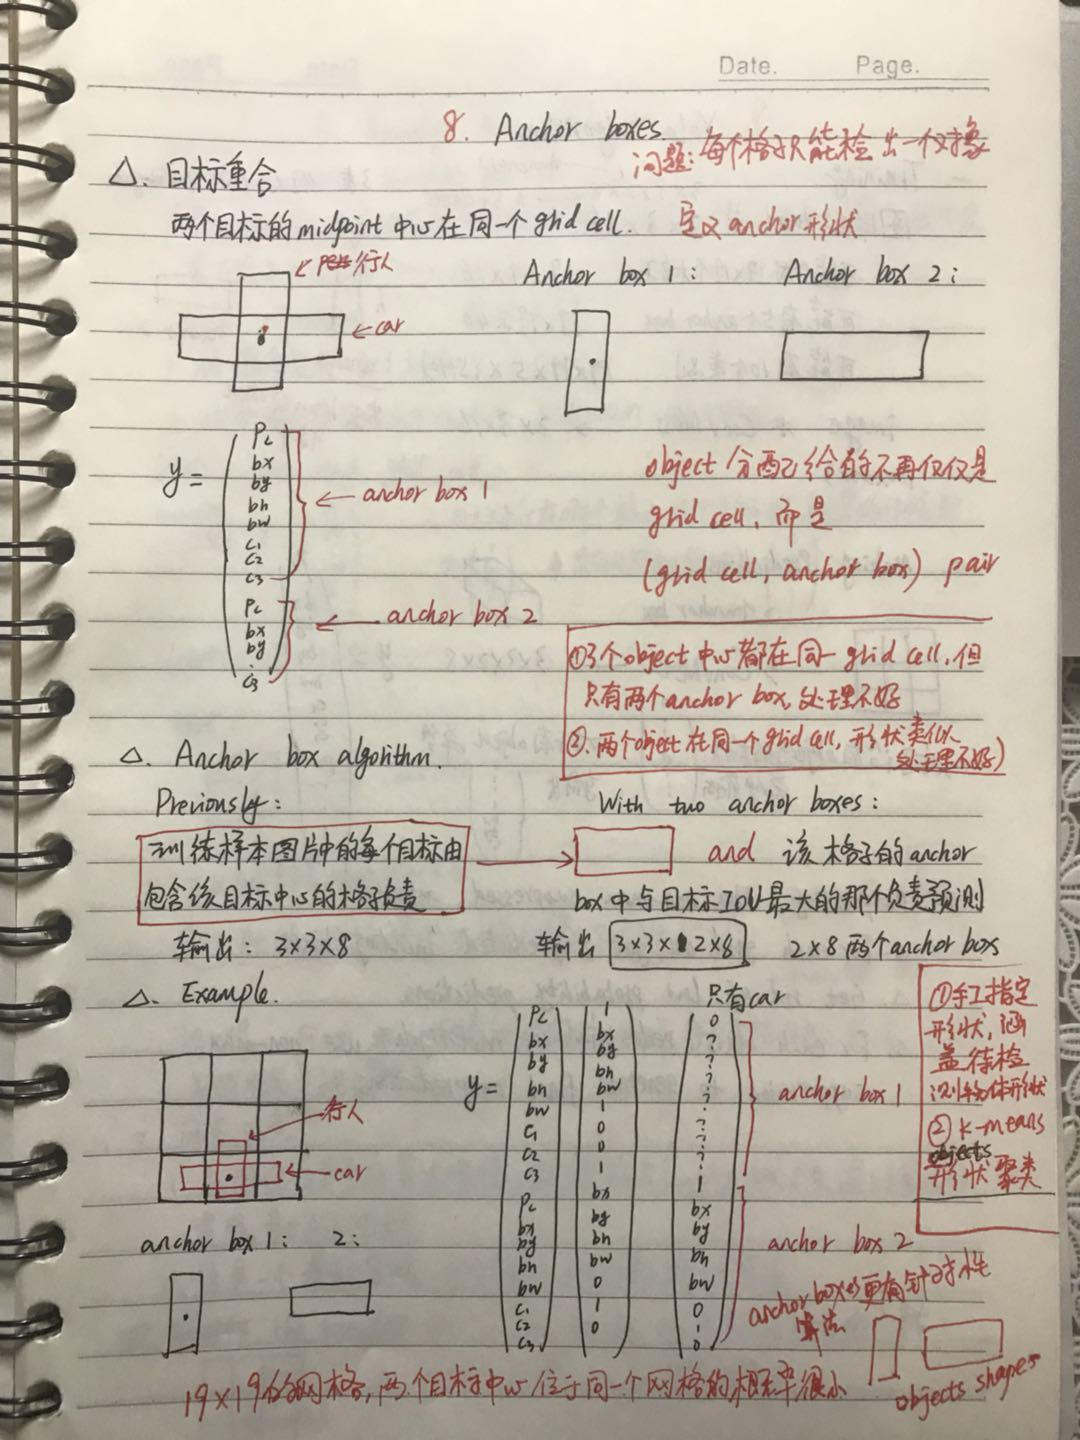 Date. Page.
8. Anchor boxes.
问题: 每个格子只能检出一个对象
△. 目标重合
两个目标的midpoint中心在同一个grid cell. 定义anchor形状
行人
car
Anchor box 1: Anchor box 2:
y=
Pc
bx
by
bh
bw
C1
C2
C3
Pc
bx
by
:
C3
← anchor box 1
← anchor box 2
object 分配给的不再仅仅是
grid cell, 而是
(grid cell, anchor box) pair
①3个object中心都在同一grid cell, 但
只有两个anchor box, 处理不好
②. 两个object在同一个grid cell, 形状类似
处理不好)
△. Anchor box algorithm.
Previously:
训练样本图片中的每个目标由
包含该目标中心的格子负责
输出: 3×3×8
With two anchor boxes:
and 该格子的anchor
box中与目标IOU最大的那个负责预测
输出 3×3×2×8 2×8 两个anchor box
△. Example.
行人
car
anchor box 1: 2:
只有car
y=
Pc 1 0
bx bx ?
by by ?
bh bh ?
bw bw ?
C1 1 ?
C2 0 ?
C3 0 ?
Pc 1 1
bx bx bx
by by by
bh bh bh
bw bw bw
C1 0 0
C2 1 1
C3 0 0
anchor box 1
anchor box 2
①手工指定
形状, 涵
盖待检
测物体形状
② K-means
objects
形状聚类
anchor boxes更有针对性
算法
objects shapes
19×19的网格, 两个目标中心位于同一个网格的概率很小